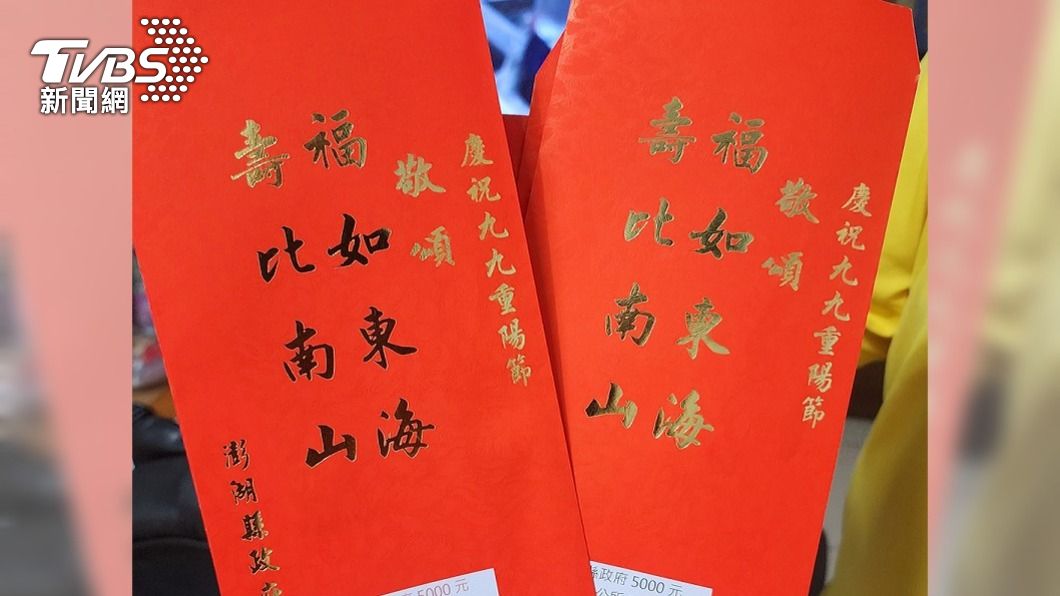 TVBS
新聞網
慶祝九九重陽節
敬頌
福如東海
壽比南山
澎湖縣政府
5000 元
慶祝九九重陽節
敬頌
福如東海
壽比南山
縣政府 5000 元
公所